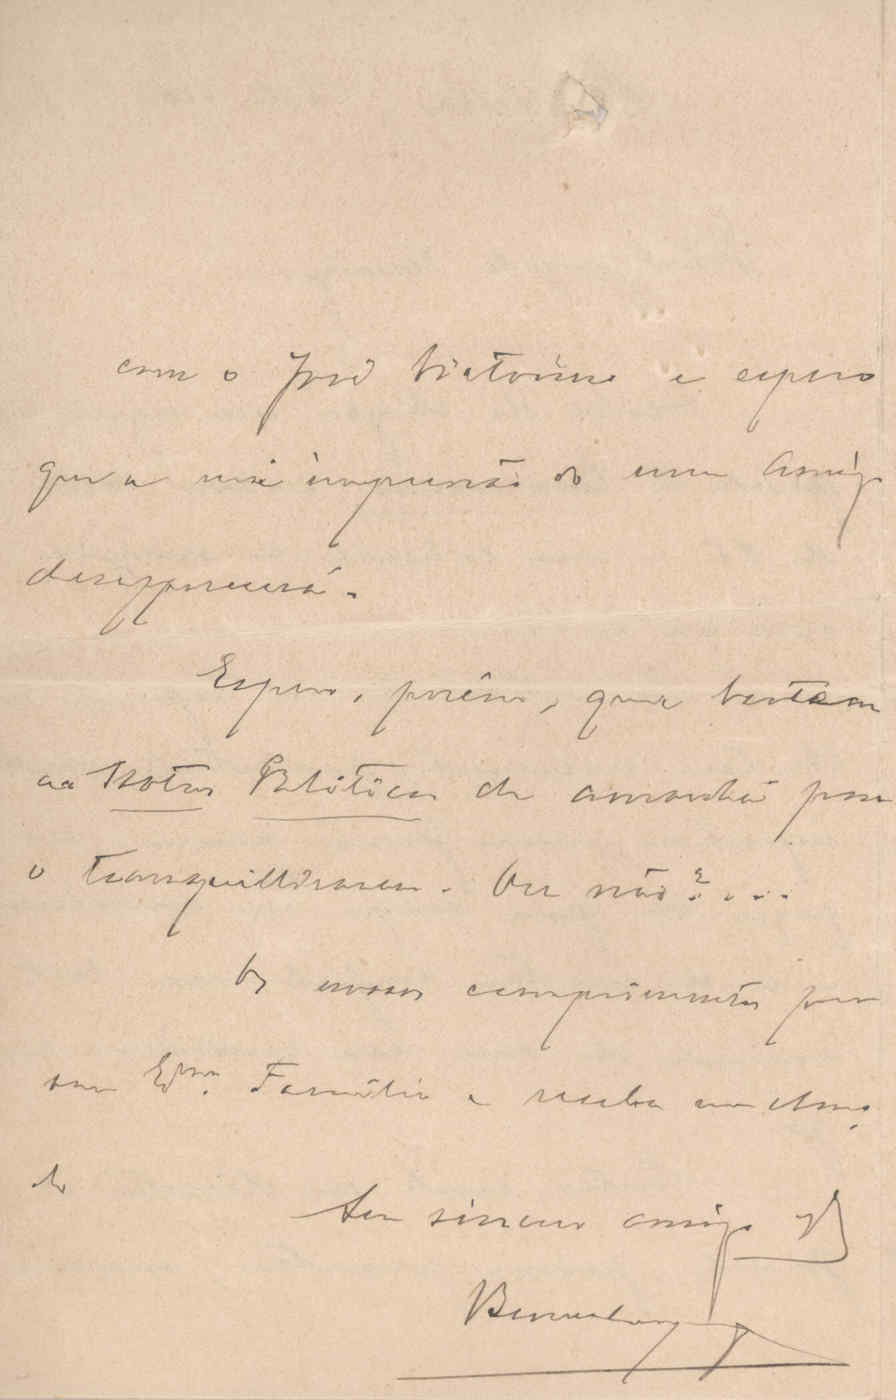 com o José Victorino e espero
que a má impressão do seu amigo
desapparecerá.
Espero, porém, que bastem
as Notas Politicas de amanhã para
o tranquillisarem. Ou não?...
Os nossos comprimentos para
sua Exma. Familia e receba um
do
Seu sincero amigo